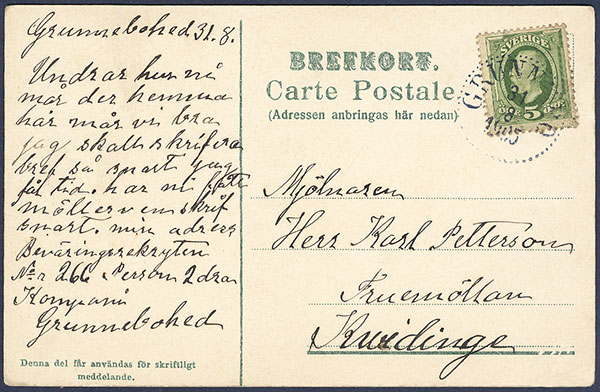 Grunnebohed 31.8.
Undrar hur ni
mår der hemma
här mår vi bra
jag skall skrifva
bref så snart jag
får tid. har ni fått
möllerven skrif
snart. min adress
Beväringsrekryten
No 266 Person 2dra
Kompani
Grunnebohed
Denna del får användas för skriftligt
meddelande.
BREFKORT.
Carte Postale
(Adressen anbringas här nedan)
SVERIGE
5 ÖRE
GRUNN
31
8
1905
Mjölnaren
Herr Karl Petterson
Fruemöllan
Kvidinge